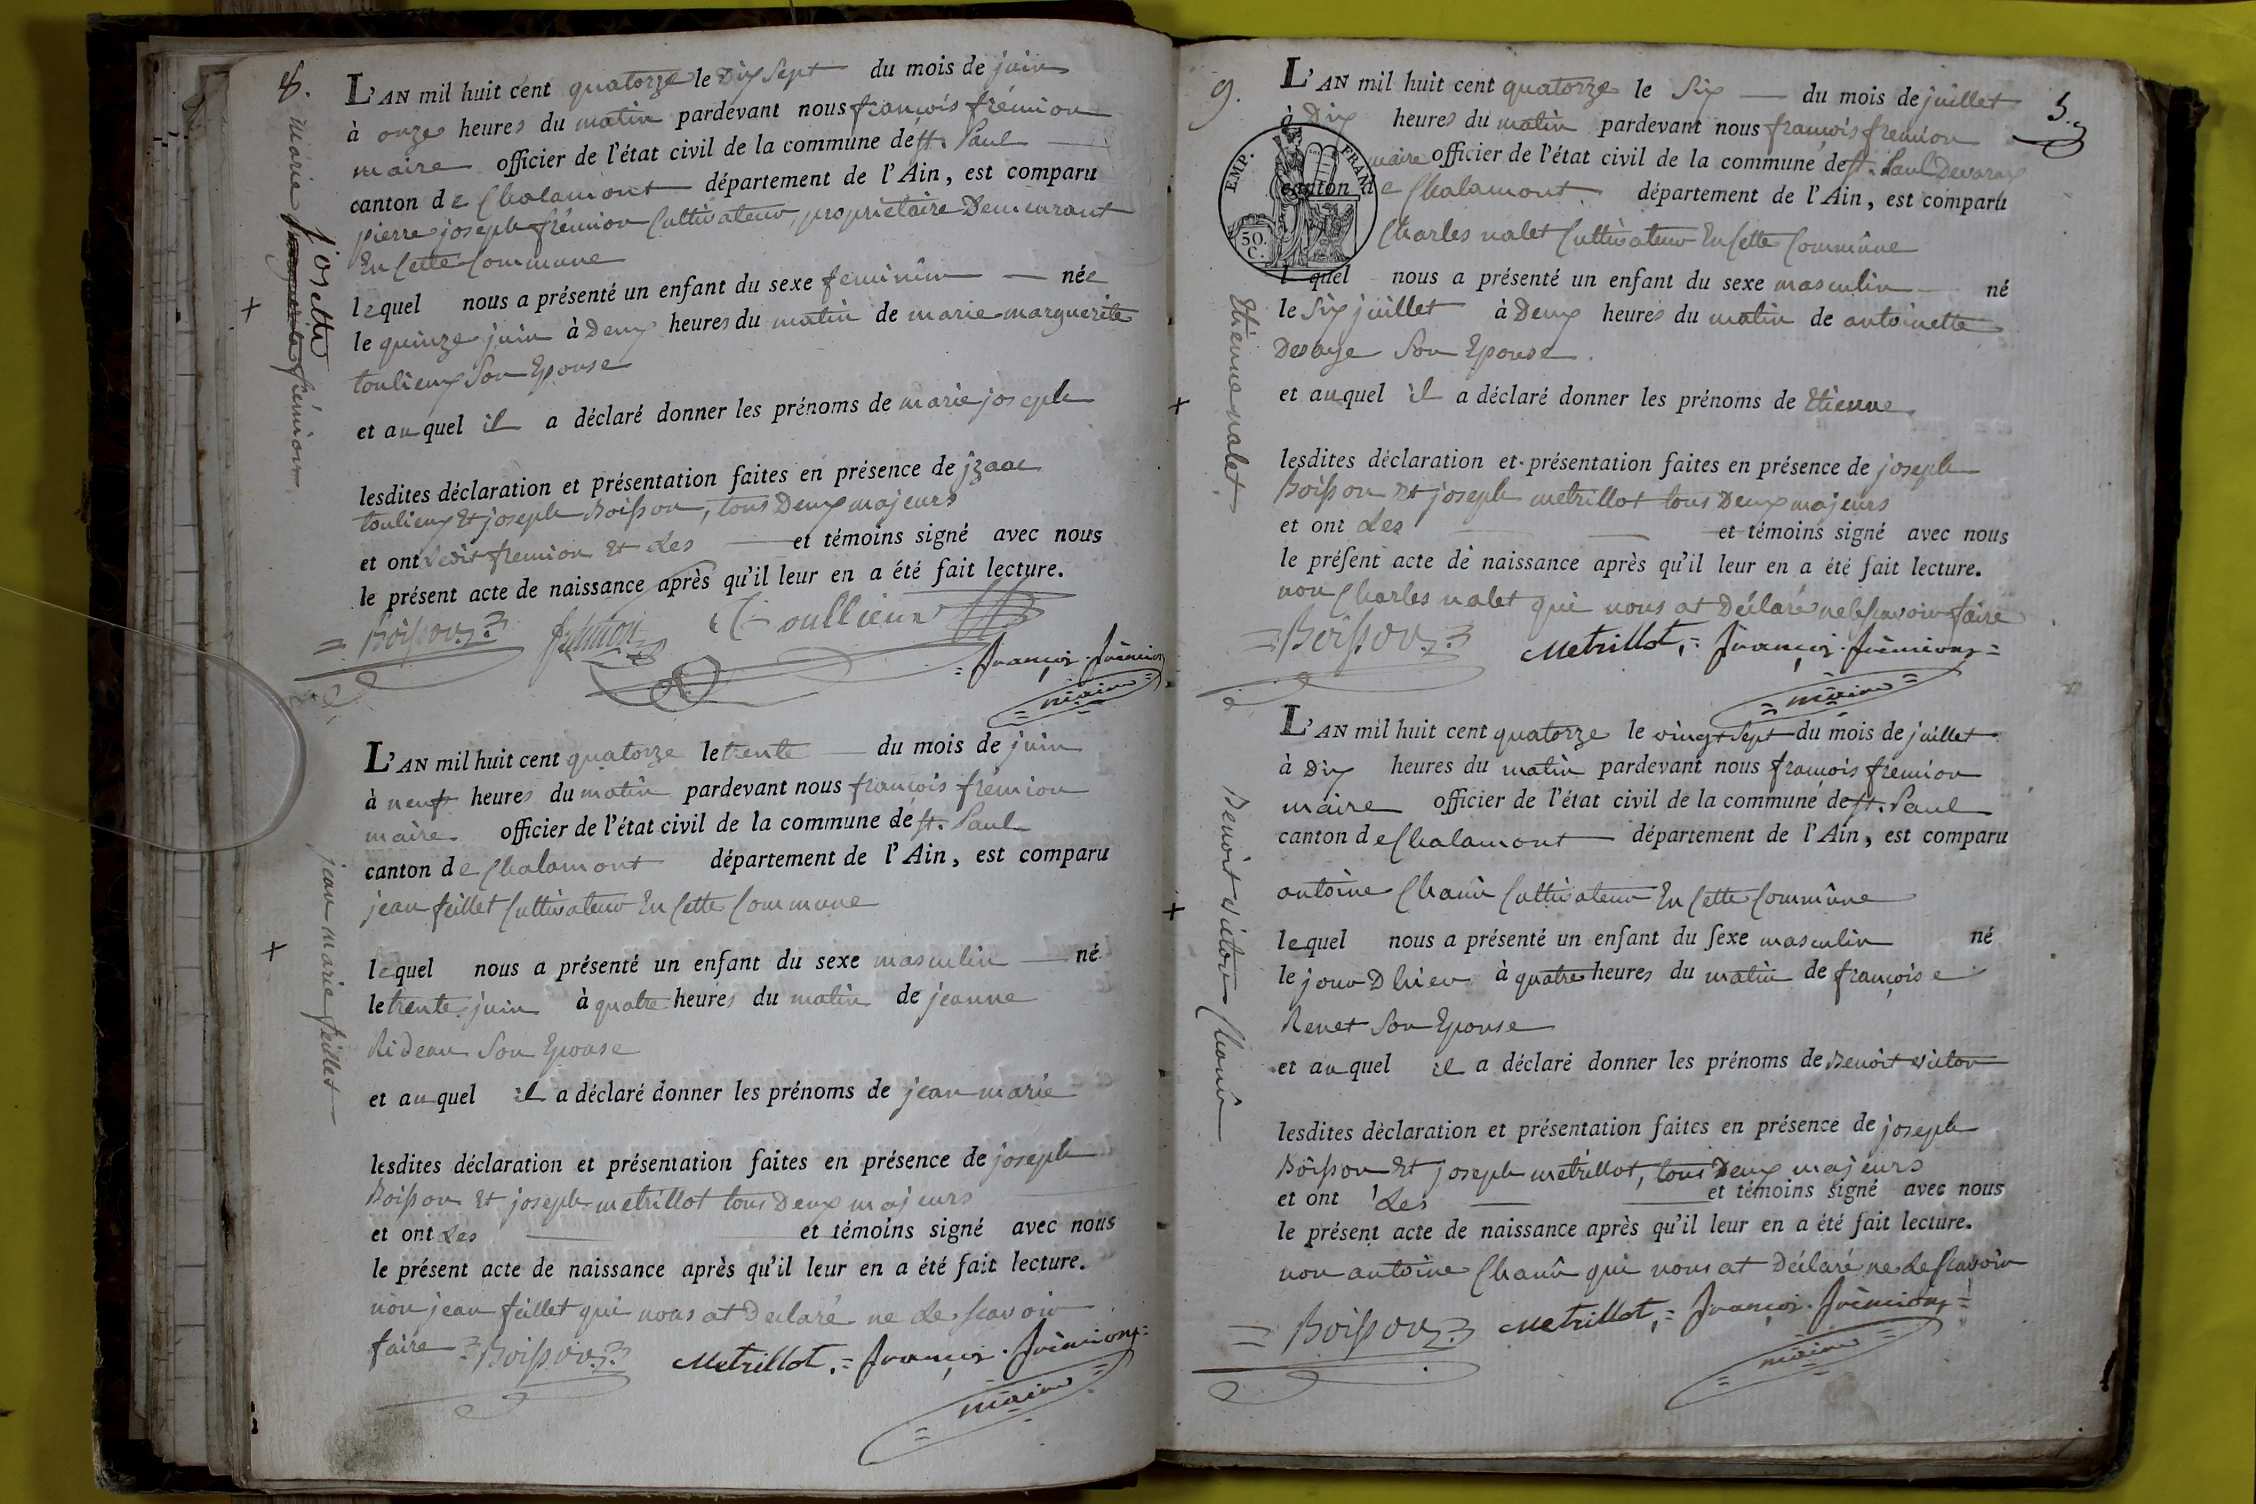 8.
marie josette frémion
L'AN mil huit cent quatorze le Dix Sept du mois de juin
à onze heures du matin pardevant nous françois frémion
maire officier de l'état civil de la commune de st. Paul
canton de Chalamont département de l'Ain, est comparu
pierre joseph frémion Cultivateur, propriétaire Demeurant
En Cette Commune
lequel nous a présenté un enfant du sexe feminin née
le quinze juin à Deux heures du matin de marie marguerite
toulieux Son Epouse
et auquel il a déclaré donner les prénoms de marie joseph
lesdites déclaration et présentation faites en présence de jzaac
toulieux Et joseph Boisson, tous Deux majeurs
et ont Ledit fremion Et Les et témoins signé avec nous
le présent acte de naissance après qu'il leur en a été fait lecture.
= Boisson frémion Toullieux
= françois. frémion
= maire =
jean marie feillet
L'AN mil huit cent quatorze le trente du mois de juin
à neuf heures du matin pardevant nous françois frémion
maire officier de l'état civil de la commune de st. Paul
canton de Chalamont département de l'Ain, est comparu
jean feillet Cultivateur En Cette Commune
lequel nous a présenté un enfant du sexe masculin né
le trente juin à quatre heures du matin de jeanne
Rideau Son Epouse
et auquel il a déclaré donner les prénoms de jean marie
lesdites déclaration et présentation faites en présence de joseph
Boisson Et joseph metrillot tous Deux majeurs
et ont Les et témoins signé avec nous
le présent acte de naissance après qu'il leur en a été fait lecture.
non jean feillet qui nous at Declaré ne Le scavoir
faire = Boisson Metrillot, = françois. frémion =
= maire =
9.
5.
Etienne nalet
L'AN mil huit cent quatorze le Six du mois de juillet
à Dix heures du matin pardevant nous françois fremion
maire officier de l'état civil de la commune de st. Paul Devarax
canton de Chalamont département de l'Ain, est comparu
EMP. FRAN.
50.
C.
Charles nalet Cultivateur En Cette Commune
lequel nous a présenté un enfant du sexe masculin né
le Six juillet à Deux heures du matin de antoinette
Son Epouse.
et auquel il a déclaré donner les prénoms de Etienne
lesdites déclaration et présentation faites en présence de joseph
Boisson Et joseph metrillot tous Deux majeurs
et ont Les et témoins signé avec nous
le présent acte de naissance après qu'il leur en a été fait lecture.
non Charles nalet qui nous at Déclaré ne Le scavoir faire
= Boisson Metrillot, = françois. frémion =
= maire =
Benoit victor Chanu
L'AN mil huit cent quatorze le vingt Sept du mois de juillet
à Dix heures du matin pardevant nous françois fremion
maire officier de l'état civil de la commune de st. Paul
canton de Chalamont département de l'Ain, est comparu
antoine Chanu Cultivateur En Cette Commune
lequel nous a présenté un enfant du sexe masculin né
le jour D hier à quatre heures du matin de françoise
Renet Son Epouse
et auquel il a déclaré donner les prénoms de Benoit victor
lesdites déclaration et présentation faites en présence de joseph
Boisson Et joseph metrillot, tous Deux majeurs
et ont Les et témoins signé avec nous
le présent acte de naissance après qu'il leur en a été fait lecture.
non antoine Chanu qui nous at Déclaré ne Le scavoir
= Boisson Metrillot, = françois. frémion =
= maire =